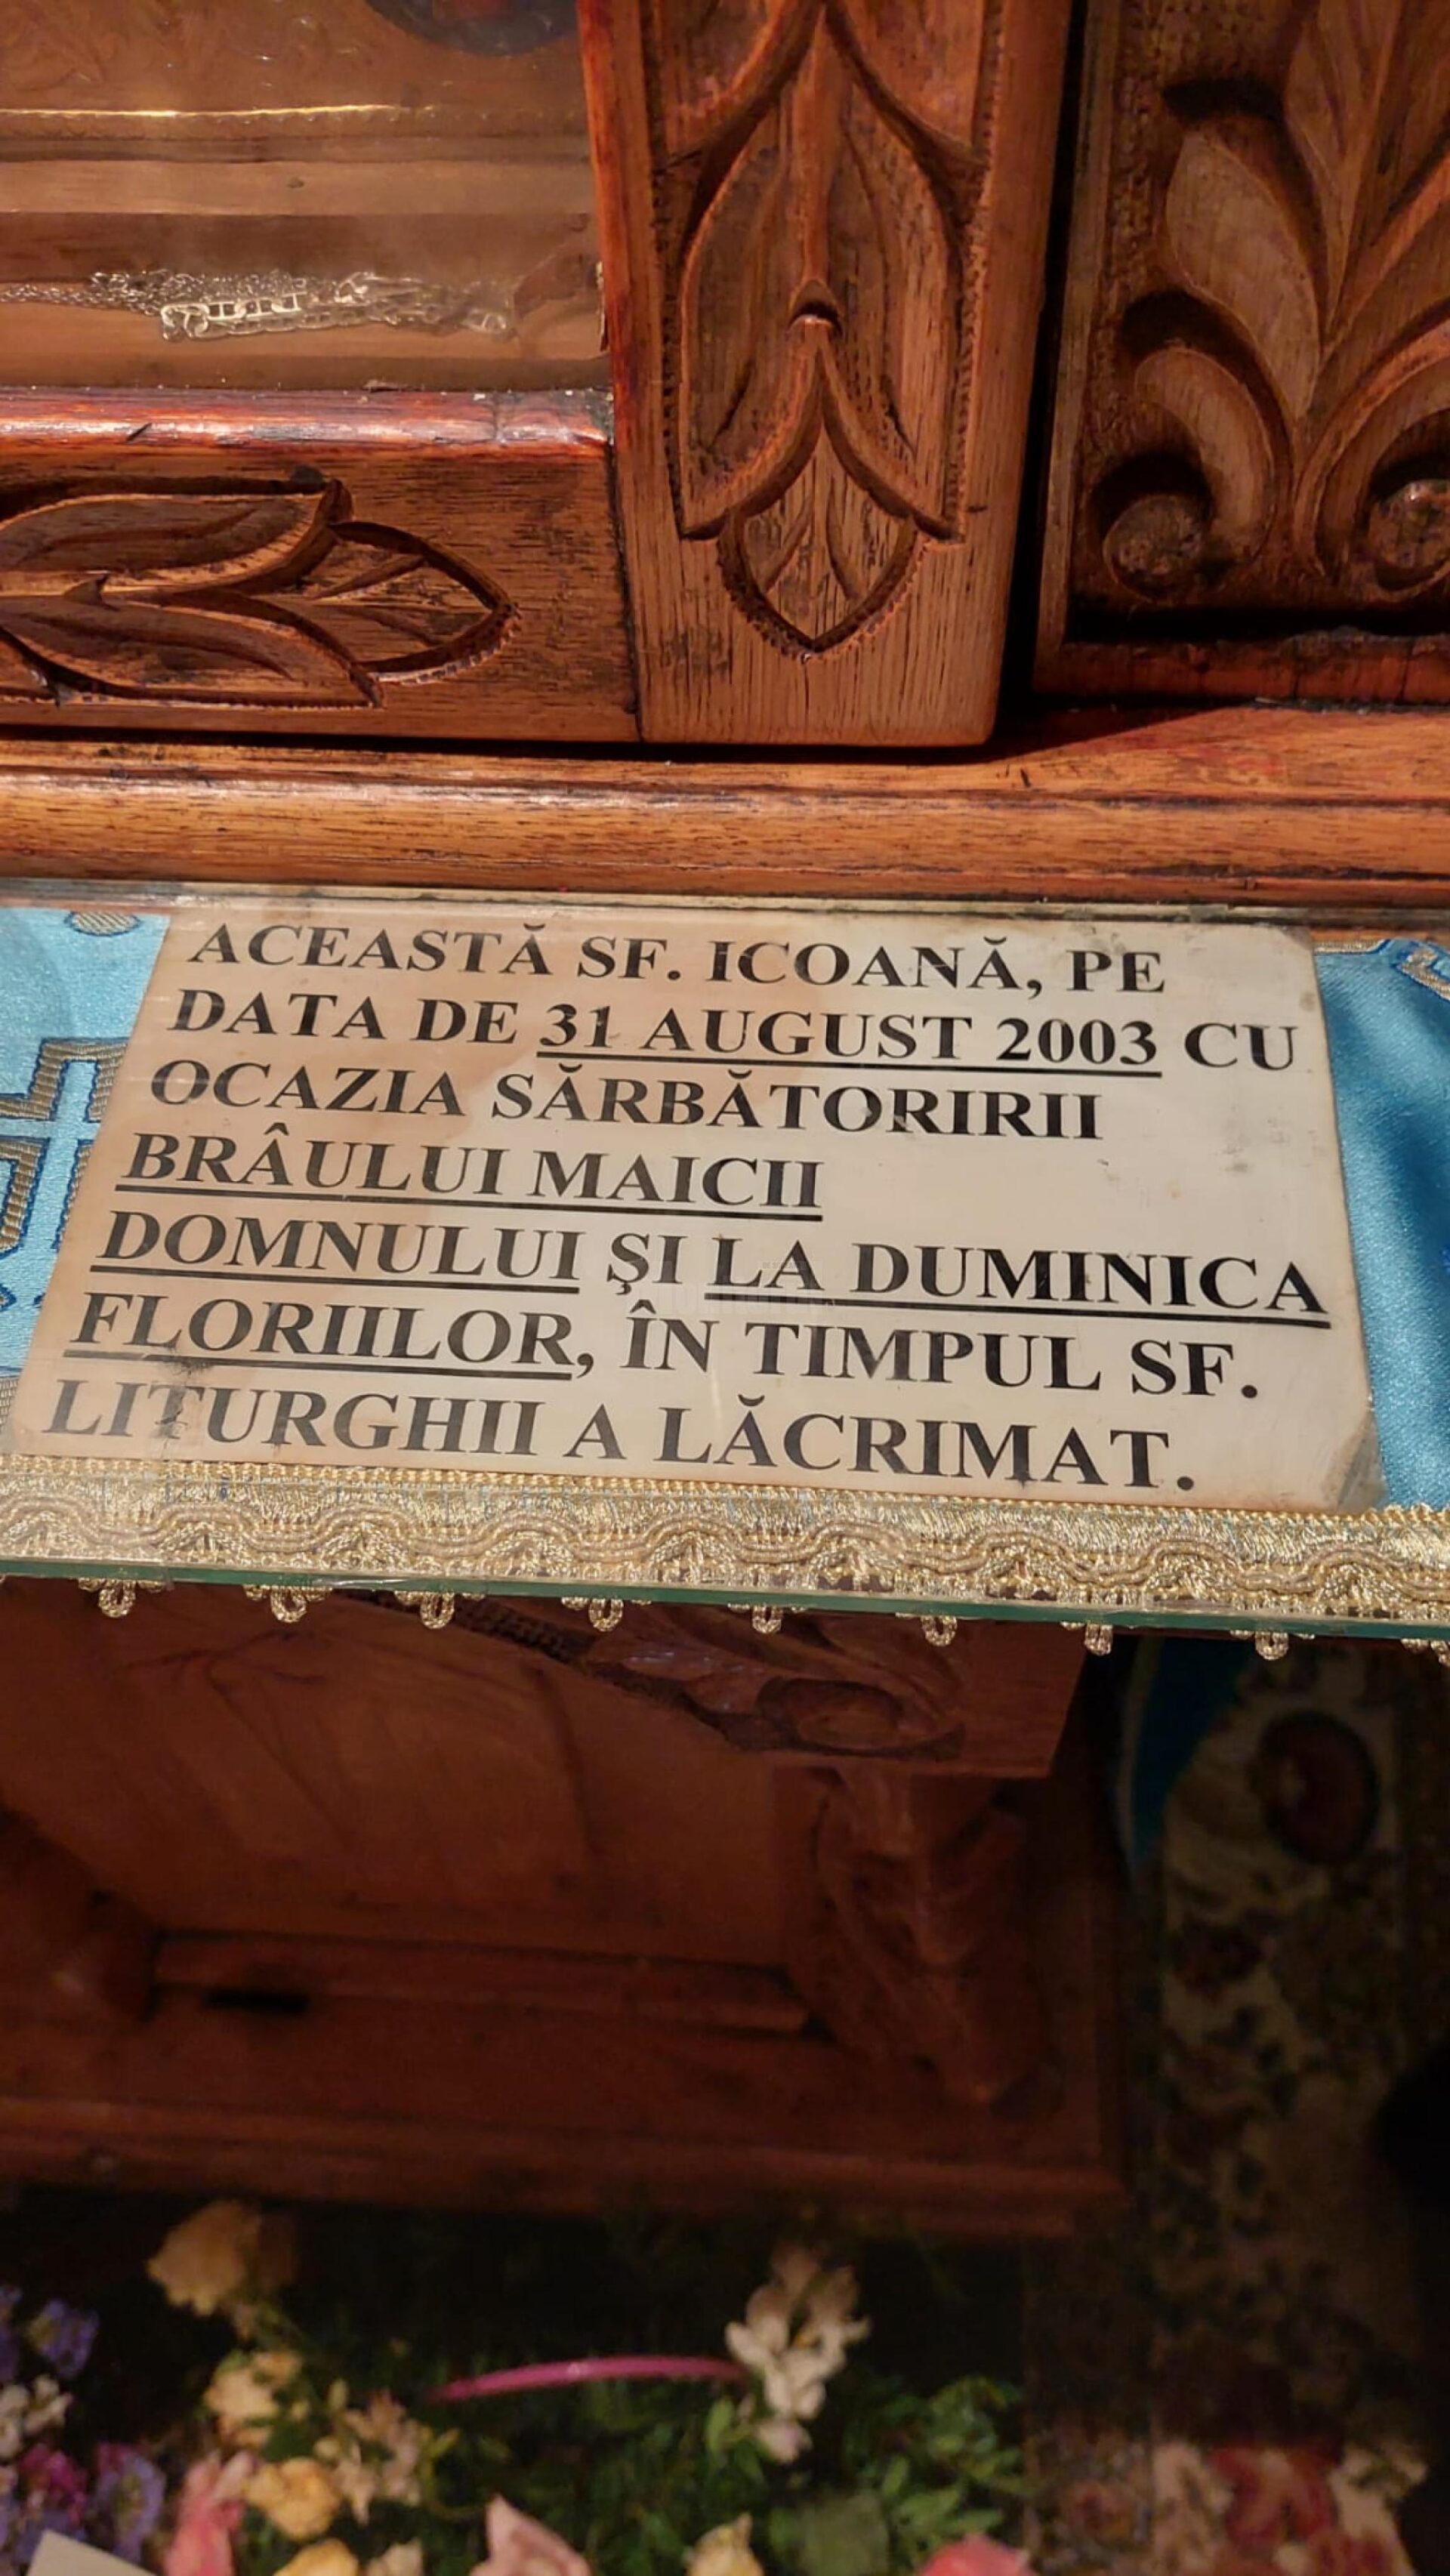 ACEASTĂ SF. ICOANĂ, PE
DATA DE 31 AUGUST 2003 CU
OCAZIA SĂRBĂTORIRII
BRÂULUI MAICII
DOMNULUI ŞI LA DUMINICA
FLORIILOR, ÎN TIMPUL SF.
LITURGHII A LĂCRIMAT.